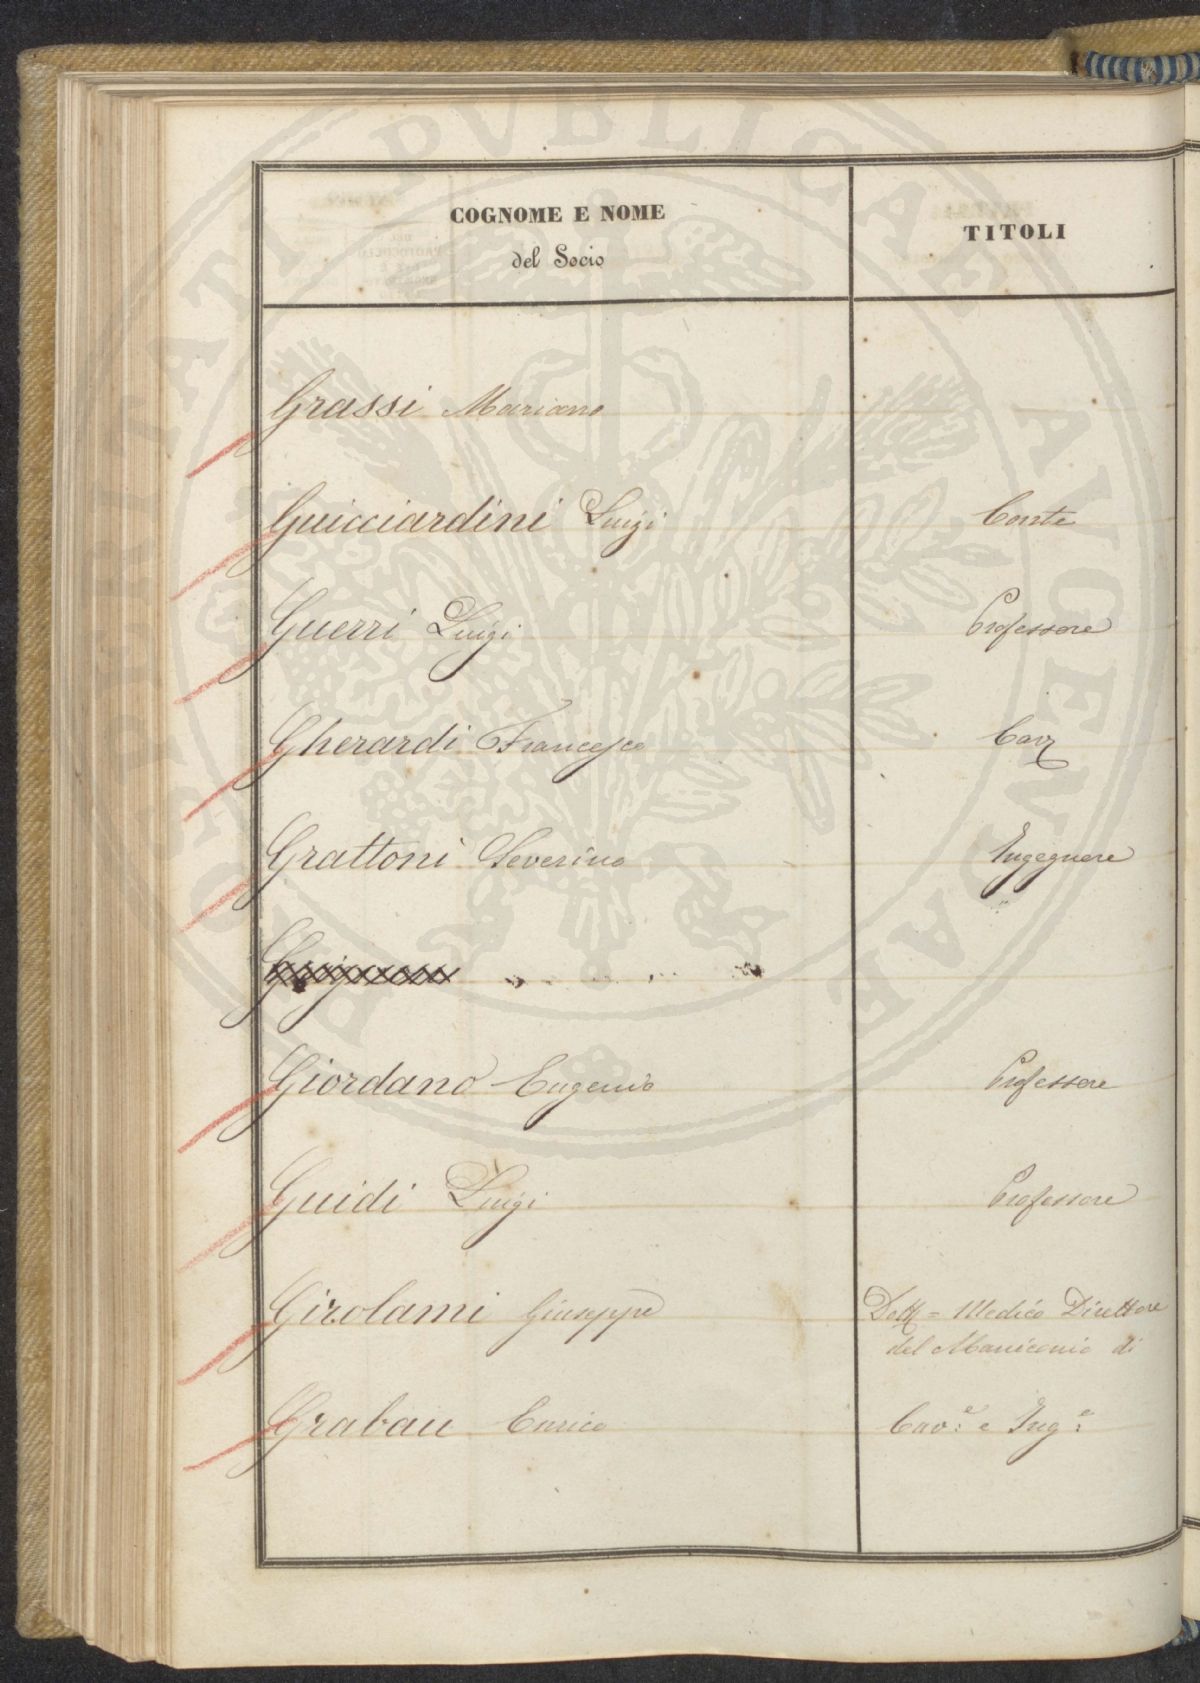 COGNOME E NOME
del Socio
TITOLI
Grassi Mariano
Guicciardini Luigi Conte
Guerri Luigi Professore
Gherardi Francesco Cav
Grattoni Severino Ingegnere
Giordano Eugenio Professore
Guidi Luigi Professore
Girolami Giuseppe Dott = Medico Direttore
del Manicomio di
Grabau Enrico Cav.e e Ing.e
PROSPERITATI PVBLICAE AVGENDAE